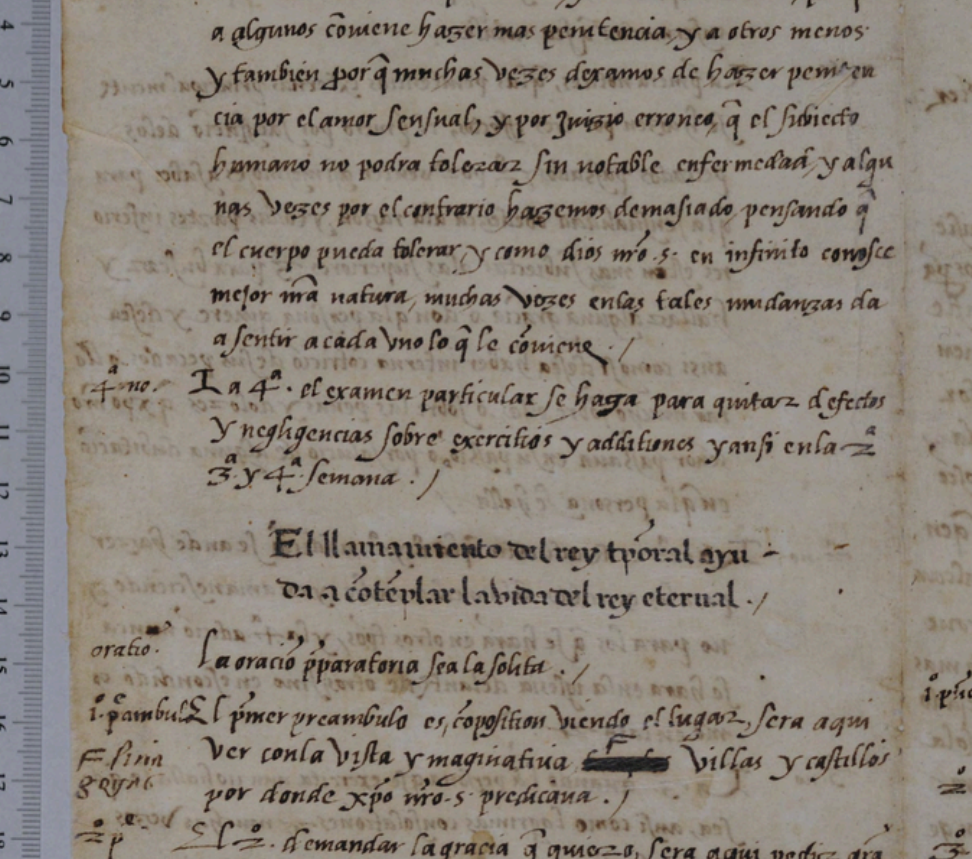 a algunos cōviene hazer mas penitencia, y a otros menos
y tambien porq̄ muchas vezes dexamos de hazer peniten
cia por el amor sensual, y por juizio erroneo, q̄ el subiecto
humano no podra tolerar sin notable enfermedad, y algu
nas vezes por el contrario hazemos demasiado, pensando q̄
el cuerpo pueda tolerar, y como dios nr̄o .s. en infinito conosce
mejor nr̄a natura, muchas vezes en las tales mudanzas da
a sentir a cada vno lo q̄ le cōviene ./
4ª no.
La 4ª. el examen particular se haga para quitar defectos
y negligencias sobre exercitios y additiones y ansi en la 2ª
3ª y 4ª semana ./
El llamamiento del rey tp̄oral ayu-
da a cōtēplar la vida del rey eternal ./
oratio.
La oraciō p̄paratoria sea la solita ./
1º p̄ambul.
El p̄mer preambulo es, cōposition viendo el lugar, sera aqui
ver con la vista ymaginativa villas y castillos
F sina
gogas
por donde xp̄o nr̄o .s. predicava ./
2º p̄e
El 2º. demandar la gracia q̄ quiero, sera aqui pedir grā